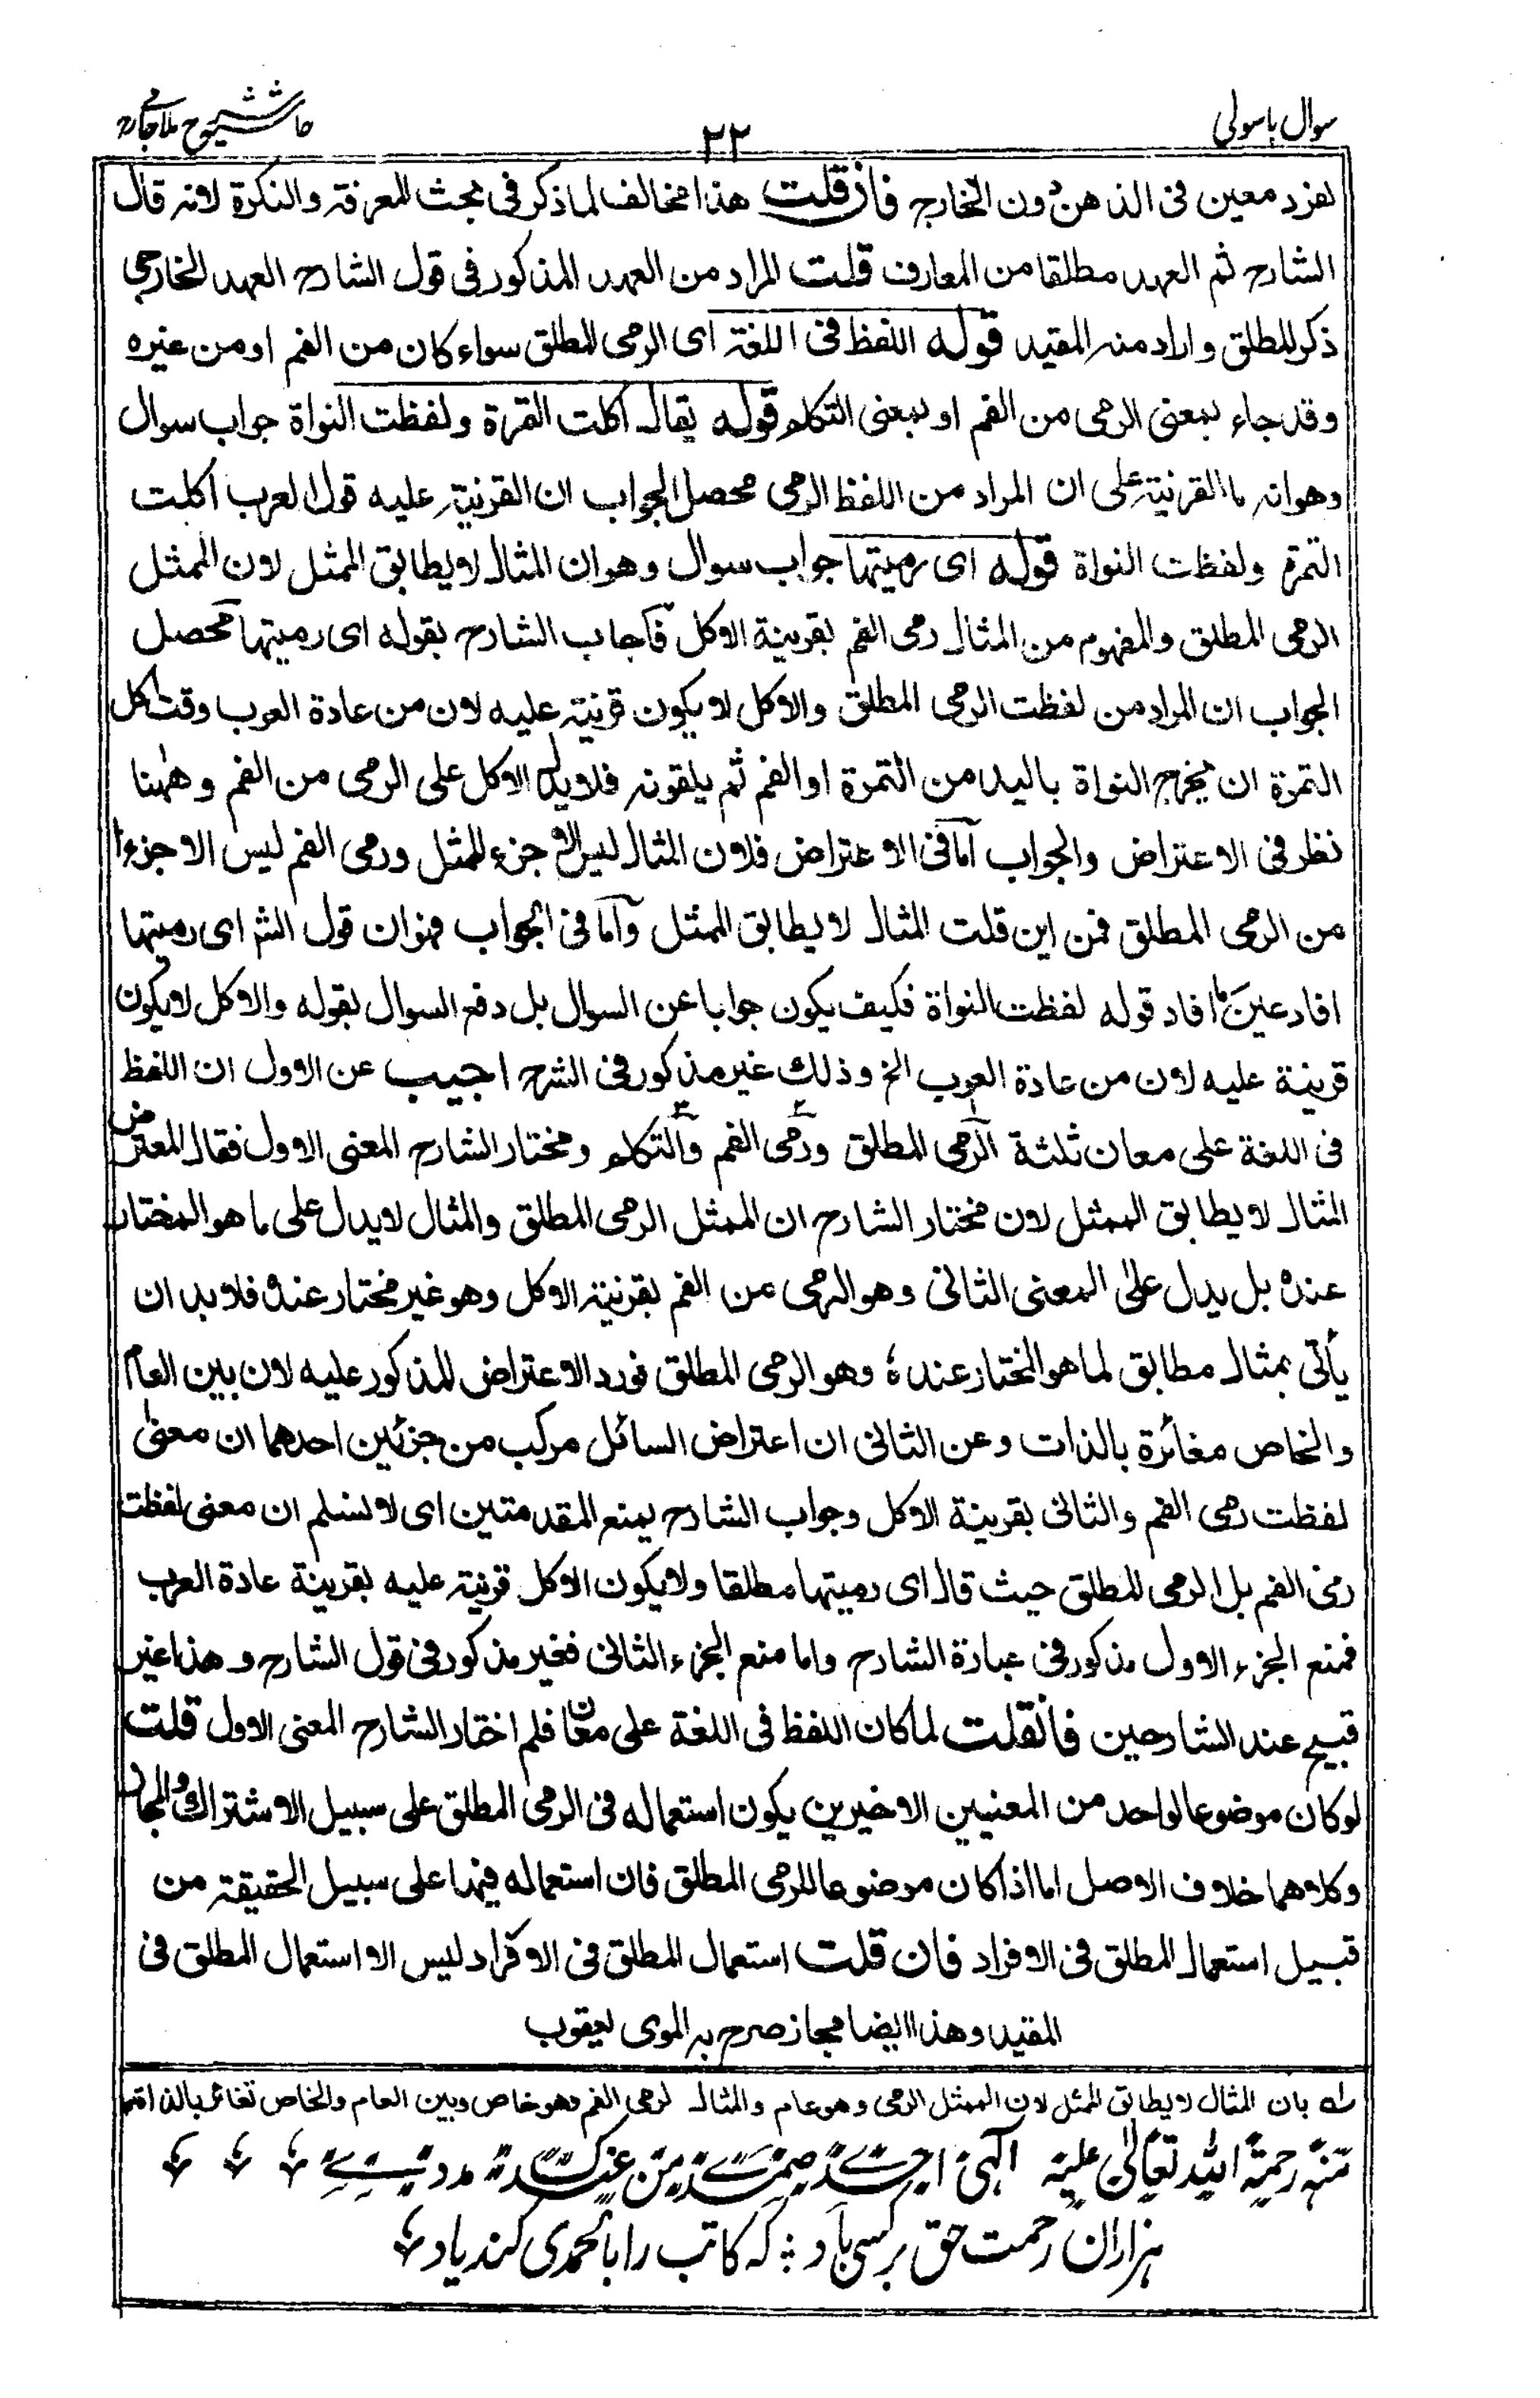 سوال باسولی
۲۲
لفرد معين فى الذهن دون الخارج فان قلت هذا مخالف لما ذكر فى بحث المعرفة والنكرة لانه قال
الشارح ثم العهد مطلقا من المعارف قلت المراد من العهد المذكور فى قول الشارح العهد الخارجى
ذكر المطلق واراد منه المقيد قوله اللفظ فى اللغة اى الرمى المطلق سواء كان من الفم او من غيره
وقد جاء بمعنى الرمى من الفم او بمعنى التكلم قوله يقال اكلت التمرة ولفظت النواة جواب سوال
وهو انه ما القرينة على ان المراد من اللفظ الرمى محصل الجواب ان القرينة عليه قول العرب اكلت
التمرة ولفظت النواة قوله اى رميتها جواب سوال وهو ان المثال لا يطابق الممثل لان الممثل
الرمى المطلق والمفهوم من المثال رمى الفم بقرينة الاكل فاجاب الشارح بقوله اى رميتها محصل
الجواب ان المراد من لفظت الرمى المطلق والاكل لا يكون قرينة عليه لان من عادة العرب وقت اكل
التمرة ان يخرج النواة باليد من التمرة او الفم ثم يلقونه فلا يدل الاكل على الرمى من الفم وههنا
نظر فى الاعتراض والجواب اما فى الاعتراض فلان المثال ليس الا جزء للمثل ورمى الفم ليس الا جزءا
من الرمى المطلق فمن اين قلت المثال لا يطابق الممثل واما فى الجواب فهو ان قول الشر اى رميتها
افاد عين ما افاد قوله لفظت النواة فكيف يكون جوابا عن السوال بل دفع السوال بقوله والاكل لا يكون
قرينة عليه لان من عادة العرب الخ وذلك غير مذكور فى الشرح اجيب عن الاول ان اللفظ
فى اللغة على معان ثلثة الرمى المطلق ورمى الفم والتكلم ومختار الشارح المعنى الاول فقال المعترض
المثال لا يطابق الممثل لان مختار الشارح ان الممثل الرمى المطلق والمثال لا يدل على ما هو المختار
عنده بل يدل على المعنى الثانى وهو الرمى من الفم بقرينة الاكل وهو غير مختار عنده فلا بد ان
يأتى بمثال مطابق لما هو المختار عنده وهو الرمى المطلق فورد الاعتراض المذكور عليه لان بين العام
والخاص مغائرة بالذات وعن الثانى ان اعتراض السائل مركب من جزئين احدهما ان معنى
لفظت رمى الفم والثانى بقرينة الاكل وجواب الشارح يمنع المقدمتين اى لا نسلم ان معنى لفظت
رمى الفم بل الرمى المطلق حيث قال اى رميتها مطلقا ولا يكون الاكل قرينة عليه بقرينة عادة العرب
فمنع الجزء الاول مذكور فى عبارة الشارح واما منع الجزء الثانى فغير مذكور فى قول الشارح وهذا غير
قبيح عند الشارحين فان قلت لما كان اللفظ فى اللغة على معان فلم اختار الشارح المعنى الاول قلت
لو كان موضوعا لواحد من المعنيين الاخيرين يكون استعماله فى الرمى المطلق على سبيل الاشتراك والمجاز
وكلاهما خلاف الاصل اما اذا كان موضوعا للرمى المطلق فان استعماله فيهما على سبيل الحقيقة من
قبيل استعمال المطلق فى الافراد فان قلت استعمال المطلق فى الافراد ليس الا استعمال المطلق فى
المقيد وهذا ايضا مجاز صرح به المولى يعقوب
له بان المثال لا يطابق الممثل لان الممثل الرمى وهو عام والمثال لرمى الفم وهو خاص وبين العام والخاص تغائر بالذات
رحمة الله تعالى عليه الٰهى
هزاران رحمت حق بر کسى باد : که کاتب را بالحمدى کند ياد